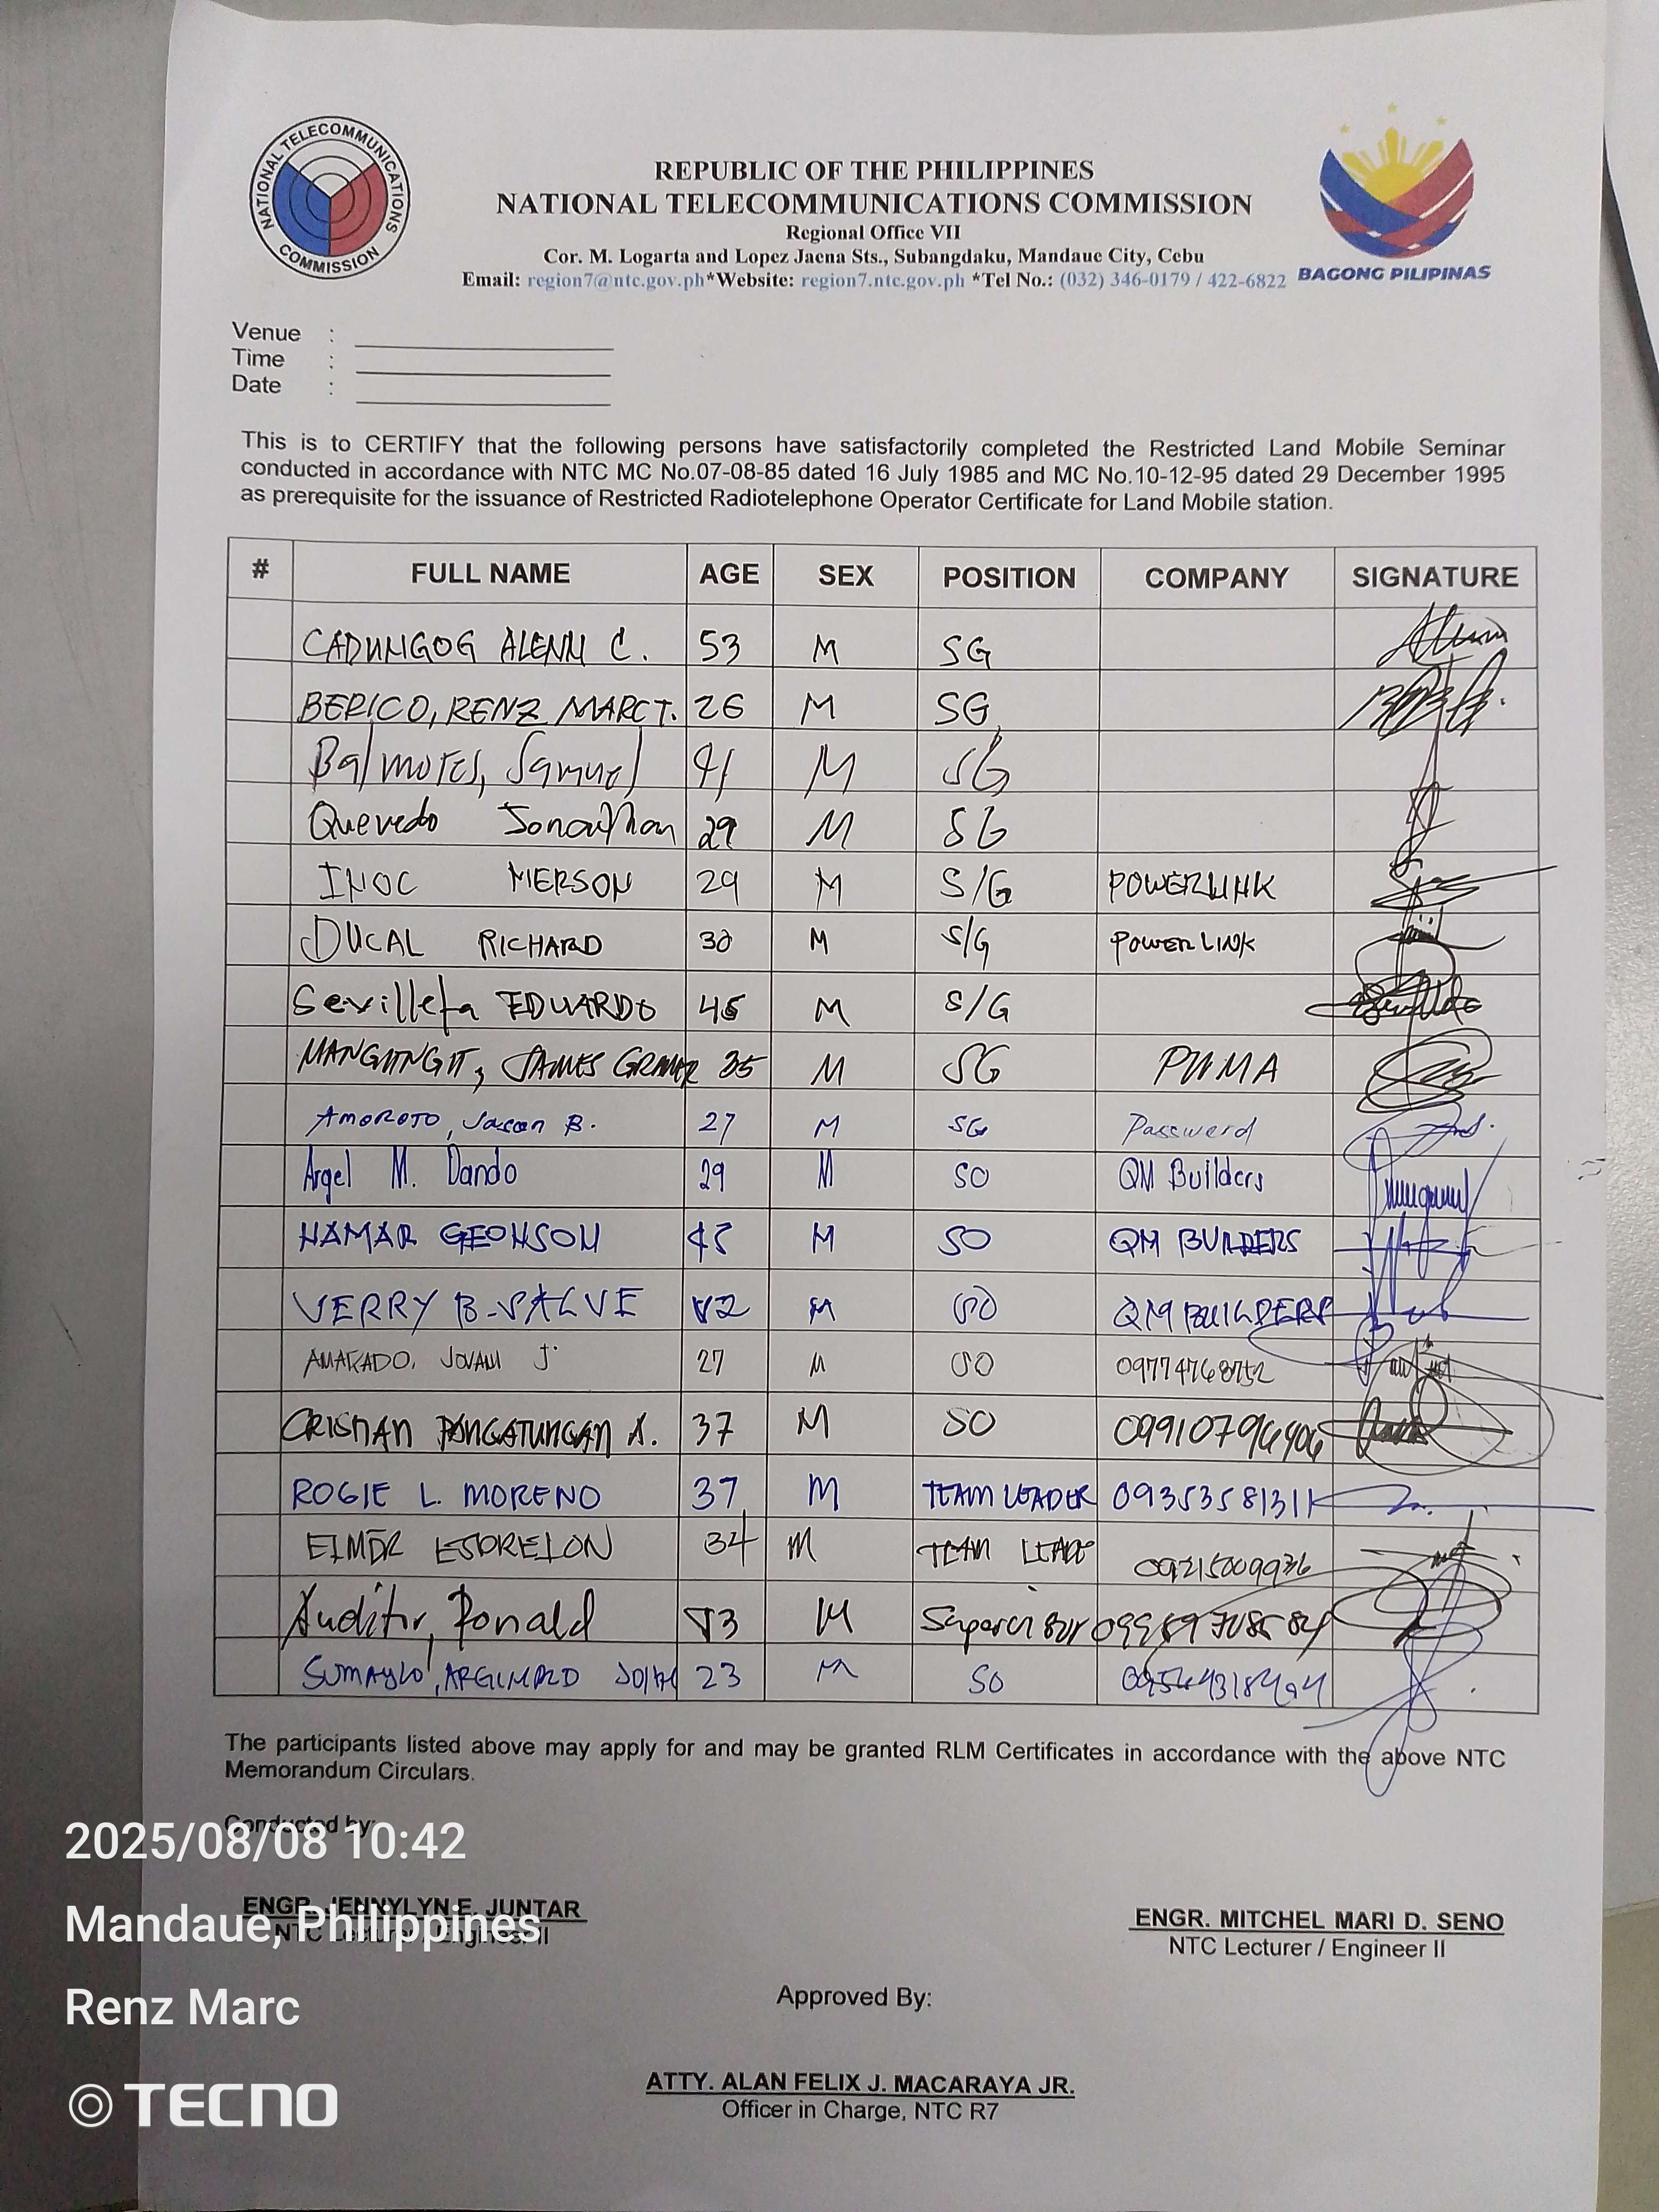 NATIONAL TELECOMMUNICATIONS COMMISSION
REPUBLIC OF THE PHILIPPINES
NATIONAL TELECOMMUNICATIONS COMMISSION
Regional Office VII
Cor. M. Logarta and Lopez Jaena Sts., Subangdaku, Mandaue City, Cebu
Email: region7@ntc.gov.ph*Website: region7.ntc.gov.ph *Tel No.: (032) 346-0179 / 422-6822
BAGONG PILIPINAS
Venue :
Time :
Date :
This is to CERTIFY that the following persons have satisfactorily completed the Restricted Land Mobile Seminar
conducted in accordance with NTC MC No.07-08-85 dated 16 July 1985 and MC No.10-12-95 dated 29 December 1995
as prerequisite for the issuance of Restricted Radiotelephone Operator Certificate for Land Mobile station.
# FULL NAME AGE SEX POSITION COMPANY SIGNATURE
CADUNGOG ALENN C. 53 M SG
BERICO, RENZ MARC T. 26 M SG
Balmores, Samuel 41 M SG
Quevedo Jonathan 29 M SG
INOC MERSON 29 M S/G POWERLINK
DUCAL RICHARD 30 M S/G POWER LINK
Sevilleta EDUARDO 45 M S/G
JAMES 35 M SG PUMA
AMOROTO, B. 27 M SG Password
Argel M. Dando 29 M SO QM Builders
HAMAR GEOHSON 45 M SO QM BUILDERS
VERRY B. SALVE M SO QM BUILDERS
JOVANI J. 27 M SO
CRISTIAN A. 37 M SO
ROGIE L. MORENO 37 M TEAM LEADER 09353581311
34 M TEAM 09215009936
Auditor, Ronald M
23 M SO
The participants listed above may apply for and may be granted RLM Certificates in accordance with the above NTC
Memorandum Circulars.
Conducted by:
ENGR. JENNYLYN E. JUNTAR
NTC Lecturer / Engineer II
ENGR. MITCHEL MARI D. SENO
NTC Lecturer / Engineer II
Approved By:
ATTY. ALAN FELIX J. MACARAYA JR.
Officer in Charge, NTC R7
2025/08/08 10:42
Mandaue, Philippines
Renz Marc
TECNO